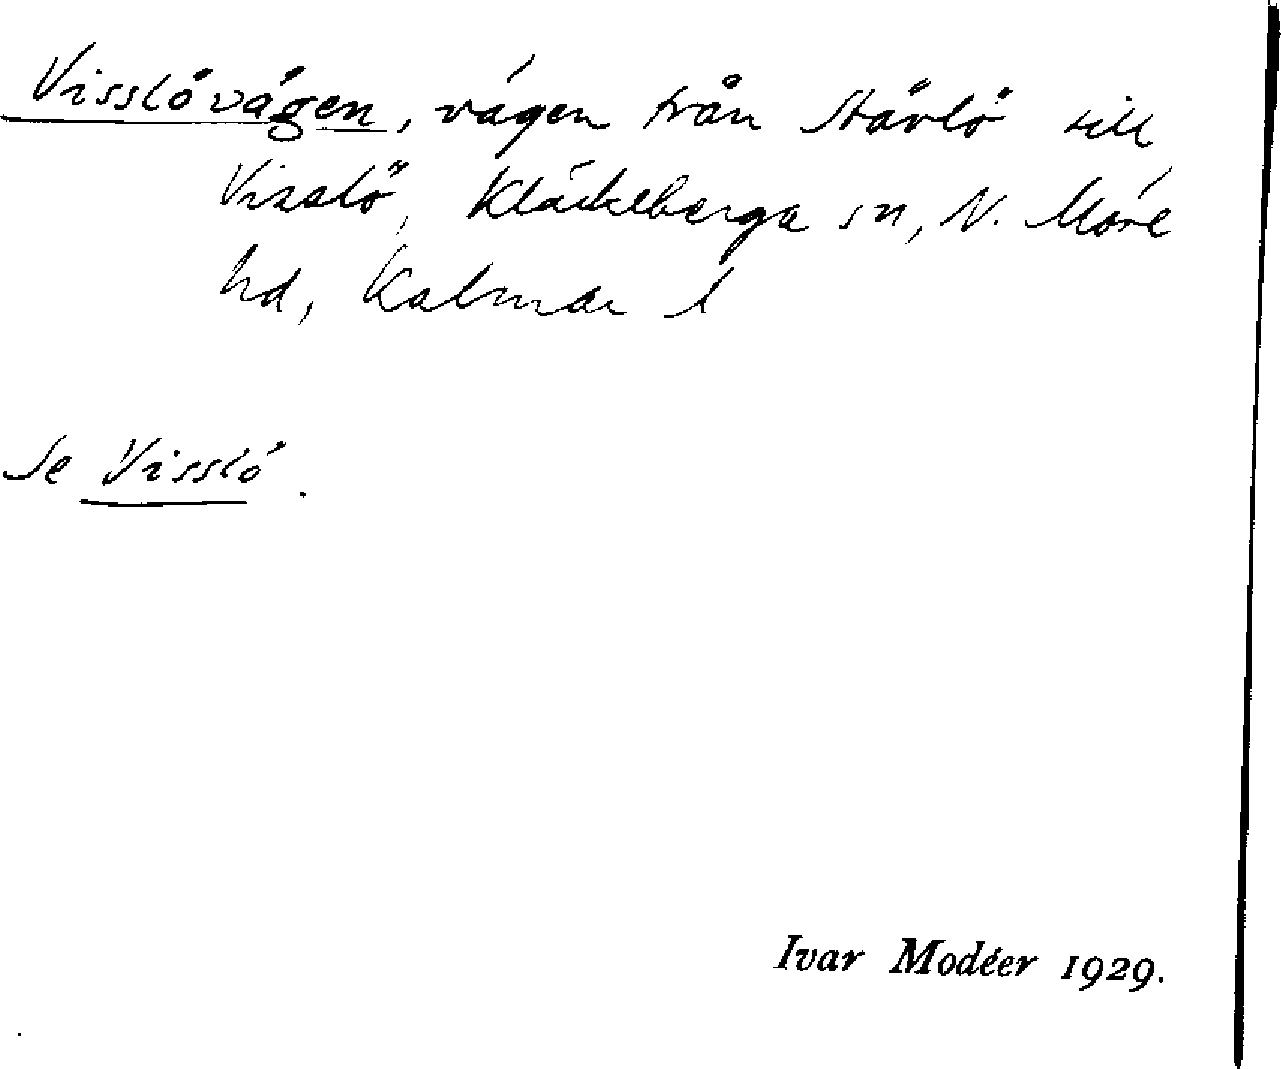 Visslövägen, vägen från Stävlö till
Visslö, Kläckeberga sn, N. Möre
hd, Kalmar l
Se Visslö.
Ivar Modéer 1929.